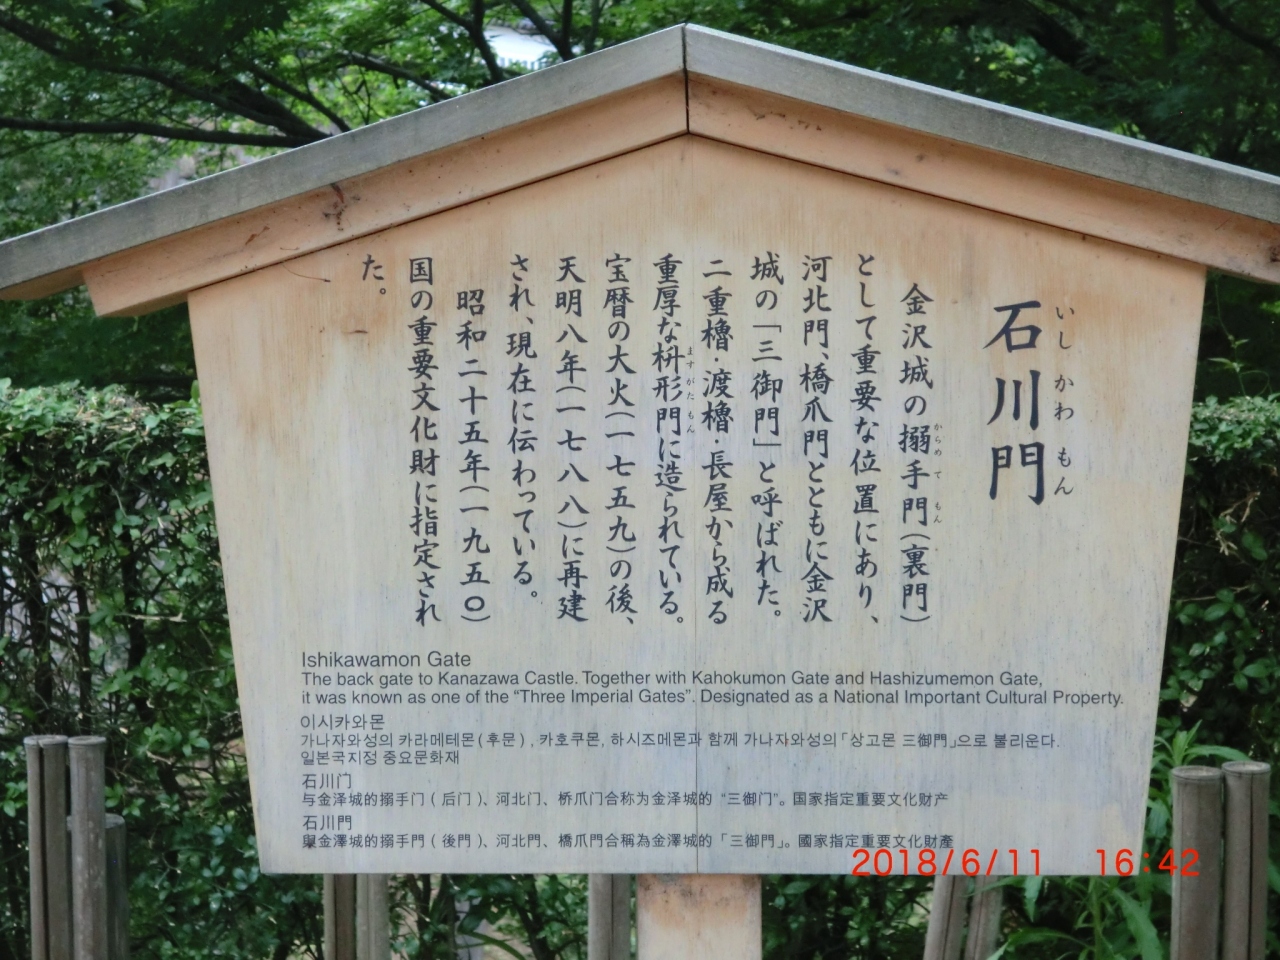 石川門
いしかわもん
金沢城の搦手門(裏門)
からめてもん
として重要な位置にあり、
河北門、橋爪門とともに金沢
城の「三御門」と呼ばれた。
二重櫓・渡櫓・長屋から成る
重厚な枡形門に造られている。
ますがたもん
宝暦の大火(一七五九)の後、
天明八年(一七八八)に再建
され、現在に伝わっている。
昭和二十五年(一九五〇)
国の重要文化財に指定され
た。
Ishikawamon Gate
The back gate to Kanazawa Castle. Together with Kahokumon Gate and Hashizumemon Gate,
it was known as one of the “Three Imperial Gates”. Designated as a National Important Cultural Property.
이시카와몬
가나자와성의 카라메테몬(후문), 카호쿠몬, 하시즈메몬과 함께 가나자와성의「상고몬 三御門」으로 불리운다.
일본국지정 중요문화재
石川门
与金泽城的搦手门(后门)、河北门、桥爪门合称为金泽城的“三御门”。国家指定重要文化财产
石川門
與金澤城的搦手門(後門)、河北門、橋爪門合稱為金澤城的「三御門」。國家指定重要文化財產
2018/6/11 16:42